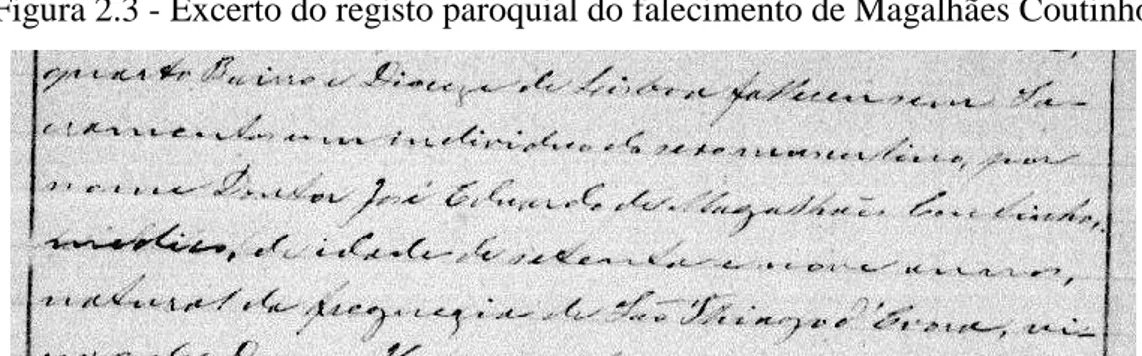 Figura 2.3 - Excerto do registo paroquial do falecimento de Magalhães Coutinho
quarto Bairro e Diocese de Lisboa falleceu sem Sa-
cramentos um individuo do sexo masculino, por
nome Doutor José Eduardo de Magalhães Coutinho,
medico, de idade de setenta e nove annos,
natural da freguezia de São Thiago d'Evora, vi-